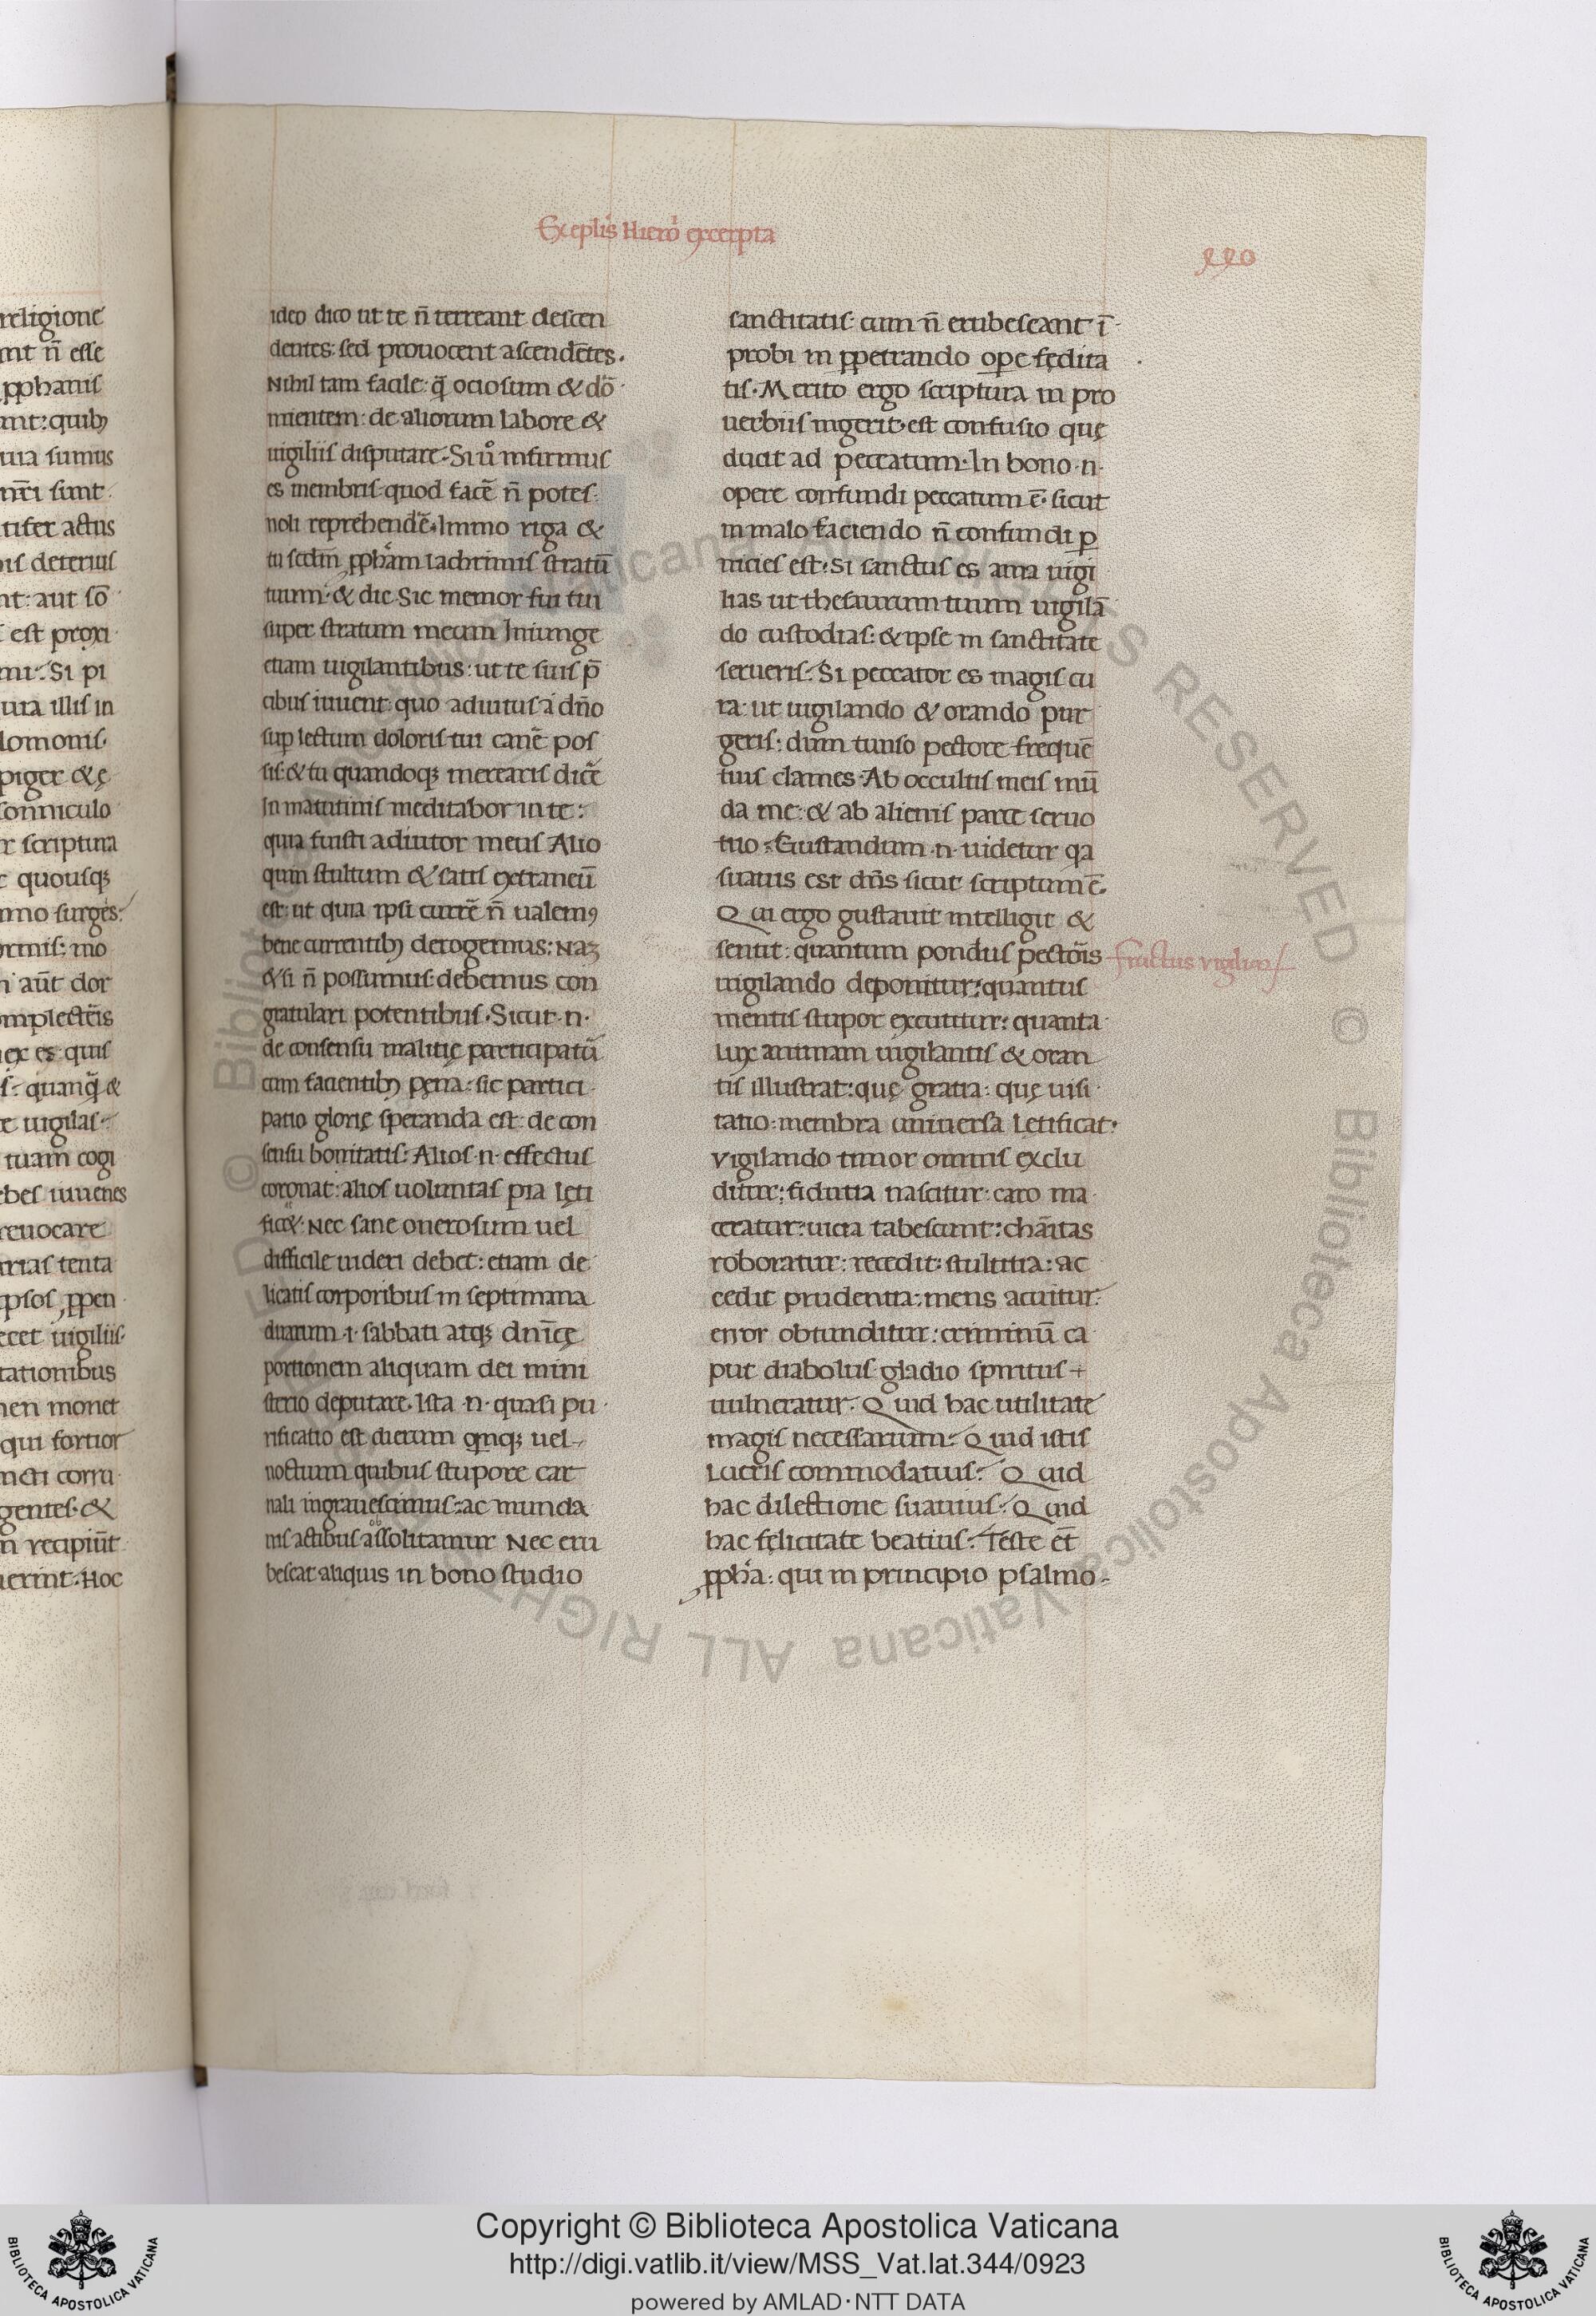 Ex eplis Hiero excerpta
220
religione
nt n̄ esse
ꝓphanis
ant: quib;
uia sumus
nr̄i sunt.
tifer actus
is deterius
nt: aut sō
est proxi
mi. Si pi
ura illis in
lomonis.
piger & ę
somniculo
r scriptura
quousq;
mo surges:
ormis: mo
aūt dor
mplectēis
ex es: quis
s: quanq̄ &
e uigilas.
tuam cogi
ebes iuuenes
reuocare
arias tenta
ipsos ꝓpen
ecet uigiliis.
tationibus
men monet
qui fortior
ncti corru
gentes. &
n̄ recipiūt
uerint. Hoc
ideo dico ut te n̄ terreant descen
dentes: sed prouocent ascendētes.
Nihil tam facile: q̄ ociosum & dō
mientem: de aliorum labore &
uigiliis disputare. Si u͛o infirmus
es membris quod facē n̄ potes:
noli reprehendē. Immo riga &
tu scdm̄ ꝓpham lachrimis stratū
tuum: & dic Sic memor fui tui
super stratum meum Iniunge
etiam uigilantibus: ut te suis p̄
cibus iuuent: quo adiutus a dn̄o
suꝑ lectum doloris tui canē pos
sis: & tu quandoq; merearis dicē
In matutinis meditabor in te:
quia fuisti adiutor meus Alio
quin stultum & satis extraneū
est: ut quia ipsi currē n̄ ualemꝰ
bene currentib; derogemus: Naꝫ
& si n̄ possumus: debemus con
gratulari potentibus. Sicut .n.
de consensu malitię participatū
cum facientib; pęna: sic partici
patio glorię speranda est: de con
sensu bonitatis: Alios .n. effectus
coronat: alios uoluntas pia lęti
ficat. Nec sane onerosum uel
difficile uideri debet: etiam de
licatis corporibus in septimana
duarum .i. sabbati atq; dn̄icę
portionem aliquam dei mini
sterio deputare. Ista .n. quasi pu
rificatio est dierum qinq; uel
noctium quibus stupore car
nali ingrauescimus: ac munda
nis actibus assolitamur Nec eru
bescat aliquis in bono studio
sanctitatis: cum n̄ erubescant ī
probi in ꝑpetrando oꝑe fędita
tis. Merito ergo scriptura in pro
uerbiis ingerit. est confusio quę
ducit ad peccatum. In bono .n.
opere confundi peccatum ē. sicut
in malo faciendo n̄ confundi ꝑ
nicies est. Si sanctus es ama uigi
lias ut thesaurum tuum uigilā
do custodias: & ipse in sanctitate
serueris. Si peccator es magis cu
ra: ut uigilando & orando pur
geris: dum tunso pectore frequē
tius clames. Ab occultis meis mū
da me: & ab alienis parce seruo
tuo. Gustandum .n. uidetur qa
suauis est dn̄s sicut scriptum ē.
Qui ergo gustauit intelligit &
sentit: quantum pondus pectoīs
uigilando deponitur: quantus
mentis stupor excutitur: quanta
lux animam uigilantis & oran
tis illustrat: quę gratia: quę uisi
tatio: membra uniuersa letificat.
Vigilando timor omnis exclu
ditur: fidutia nascitur: caro ma
ceratur: uicia tabescunt: charitas
roboratur: recedit stultitia: ac
cedit prudentia: mens acuitur:
error obtunditur: criminū ca
put diabolus gladio spiritus +
uulneratur. Quid hac utilitate
magis necessarium: Quid istis
lucris commodatius: Quid
hac dilectione suauius: Quid
hac fęlicitate beatius: Teste et̄
ꝓpha: qui in principio psalmo
Fructus vigiliarꝝ
Copyright © Biblioteca Apostolica Vaticana
http://digi.vatlib.it/view/MSS_Vat.lat.344/0923
powered by AMLAD·NTT DATA
BIBLIOTECA APOSTOLICA VATICANA
BIBLIOTECA APOSTOLICA VATICANA
© Biblioteca Apostolica Vaticana ALL RIGHTS RESERVED
© Biblioteca Apostolica Vaticana ALL RIGHTS RESERVED